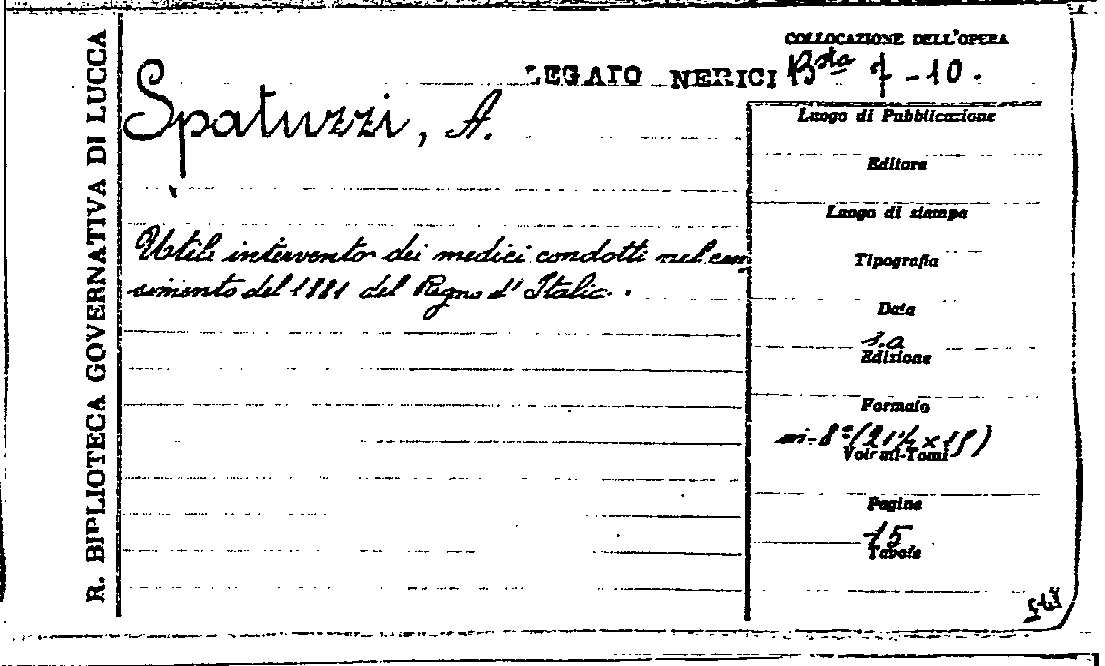 R. BIBLIOTECA GOVERNATIVA DI LUCCA
COLLOCAZIONE DELL'OPERA
LEGATO NERICI Bsta 7-10.
Spatuzzi, A.
Luogo di Pubblicazione
Editore
Luogo di stampa
Utile intervento dei medici condotti nel cen
Tipografia
simento del 1881 del Regno d'Italia.
Data
s.a
Edizione
Formato
in-8º (21½ x 15)
Volumi-Tomi
Pagine
15
Tavole